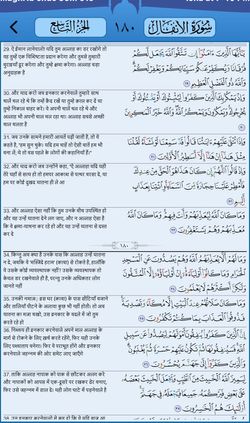 الجزء التاسع
١٨٠
سورة الأنفال
29. ऐ ईमान लानेवालो! यदि तुम अल्लाह का डर रखोगे तो
वह तुम्हें एक विशिष्टता प्रदान करेगा और तुमसे तुम्हारी
बुराइयाँ दूर करेगा और तुम्हें क्षमा करेगा। अल्लाह बड़ा
अनुग्राहक है
يَٰٓأَيُّهَا ٱلَّذِينَ ءَامَنُوٓاْ إِن تَتَّقُواْ ٱللَّهَ يَجۡعَل لَّكُمۡ
فُرۡقَانٗا وَيُكَفِّرۡ عَنكُمۡ سَيِّـَٔاتِكُمۡ وَيَغۡفِرۡ لَكُمۡۗ
وَٱللَّهُ ذُو ٱلۡفَضۡلِ ٱلۡعَظِيمِ ٢٩
30. और याद करो जब इनकार करनेवाले तुम्हारे साथ
चालें चल रहे थे कि तुम्हें क़ैद रखें या तुम्हें क़त्ल कर दें या
तुम्हें निकाल बाहर करें। वे अपनी चालें चल रहे थे और
अल्लाह भी अपनी चाल चल रहा था। अल्लाह सबसे अच्छी
चाल चलता है
وَإِذۡ يَمۡكُرُ بِكَ ٱلَّذِينَ كَفَرُواْ لِيُثۡبِتُوكَ أَوۡ يَقۡتُلُوكَ أَوۡ
يُخۡرِجُوكَۚ وَيَمۡكُرُونَ وَيَمۡكُرُ ٱللَّهُۖ وَٱللَّهُ خَيۡرُ ٱلۡمَٰكِرِينَ
٣٠
31. जब उनके सामने हमारी आयतें पढ़ी जाती हैं, तो वे
कहते हैं, "हम सुन चुके। यदि हम चाहें तो ऐसी बातें हम भी
बना लें; ये तो बस पहले के लोगों की कहानियाँ हैं।"
وَإِذَا تُتۡلَىٰ عَلَيۡهِمۡ ءَايَٰتُنَا قَالُواْ قَدۡ سَمِعۡنَا لَوۡ نَشَآءُ لَقُلۡنَا
مِثۡلَ هَٰذَآ إِنۡ هَٰذَآ إِلَّآ أَسَٰطِيرُ ٱلۡأَوَّلِينَ ٣١
32. और याद करो जब उन्होंने कहा, "ऐ अल्लाह! यदि यही
तेरे यहाँ से सत्य हो तो हमपर आकाश से पत्थर बरसा दे, या
हम पर कोई दुखद यातना ही ले आ
وَإِذۡ قَالُواْ ٱللَّهُمَّ إِن كَانَ هَٰذَا هُوَ ٱلۡحَقَّ مِنۡ عِندِكَ
فَأَمۡطِرۡ عَلَيۡنَا حِجَارَةٗ مِّنَ ٱلسَّمَآءِ أَوِ ٱئۡتِنَا بِعَذَابٍ
أَلِيمٖ ٣٢
33. और अल्लाह ऐसा नहीं कि तुम उनके बीच उपस्थित हो
और वह उन्हें यातना देने लग जाए, और न अल्लाह ऐसा है
कि वे क्षमा-याचना कर रहे हों और वह उन्हें यातना से ग्रस्त
कर दे
وَمَا كَانَ ٱللَّهُ لِيُعَذِّبَهُمۡ وَأَنتَ فِيهِمۡۚ وَمَا كَانَ ٱللَّهُ
مُعَذِّبَهُمۡ وَهُمۡ يَسۡتَغۡفِرُونَ ٣٣
١٨٠
34. किन्तु अब क्या है उनके पास कि अल्लाह उन्हें यातना
न दे, जबकि वे 'मस्जिदे हराम' (काबा) से रोकते हैं, हालाँकि
वे उसके कोई व्यवस्थापक नहीं? उसके व्यवस्थापक तो
केवल डर रखनेवाले ही हैं, परन्तु उनके अधिकतर लोग
जानते नहीं
وَمَا لَهُمۡ أَلَّا يُعَذِّبَهُمُ ٱللَّهُ وَهُمۡ يَصُدُّونَ عَنِ ٱلۡمَسۡجِدِ
ٱلۡحَرَامِ وَمَا كَانُوٓاْ أَوۡلِيَآءَهُۥٓۚ إِنۡ أَوۡلِيَآؤُهُۥٓ إِلَّا ٱلۡمُتَّقُونَ
وَلَٰكِنَّ أَكۡثَرَهُمۡ لَا يَعۡلَمُونَ ٣٤
35. उनकी नमाज़़ इस घर (काबा) के पास सीटियाँ बजाने
और तालियाँ पीटने के अलावा कुछ भी नहीं होती। तो अब
यातना का मज़ा चखो, उस इनकार के बदले में जो तुम
करते रहे हो
وَمَا كَانَ صَلَاتُهُمۡ عِندَ ٱلۡبَيۡتِ إِلَّا مُكَآءٗ وَتَصۡدِيَةٗۚ
فَذُوقُواْ ٱلۡعَذَابَ بِمَا كُنتُمۡ تَكۡفُرُونَ ٣٥
36. निश्चय ही इनकार करनेवाले अपने माल अल्लाह के
मार्ग से रोकने के लिए ख़र्च करते रहेंगे, फिर यही उनके
लिए पश्चाताप बनेगा। फिर वे पराभूत होंगे और इनकार
करनेवाले जहन्नम की ओर समेट लाए जाएँगे
إِنَّ ٱلَّذِينَ كَفَرُواْ يُنفِقُونَ أَمۡوَٰلَهُمۡ لِيَصُدُّواْ عَن سَبِيلِ
ٱللَّهِۚ فَسَيُنفِقُونَهَا ثُمَّ تَكُونُ عَلَيۡهِمۡ حَسۡرَةٗ ثُمَّ يُغۡلَبُونَۗ
وَٱلَّذِينَ كَفَرُوٓاْ إِلَىٰ جَهَنَّمَ يُحۡشَرُونَ ٣٦
37. ताकि अल्लाह नापाक को पाक से छाँटकर अलग करे
और नापाकों को आपस में एक-दूसरे पर रखकर ढेर बनाए,
फिर उसे जहन्नम में डाल दे। यही लोग घाटे में पड़नेवाले है
لِيَمِيزَ ٱللَّهُ ٱلۡخَبِيثَ مِنَ ٱلطَّيِّبِ وَيَجۡعَلَ ٱلۡخَبِيثَ بَعۡضَهُۥ
عَلَىٰ بَعۡضٖ فَيَرۡكُمَهُۥ جَمِيعٗا فَيَجۡعَلَهُۥ فِي جَهَنَّمَۚ
أُوْلَٰٓئِكَ هُمُ ٱلۡخَٰسِرُونَ ٣٧